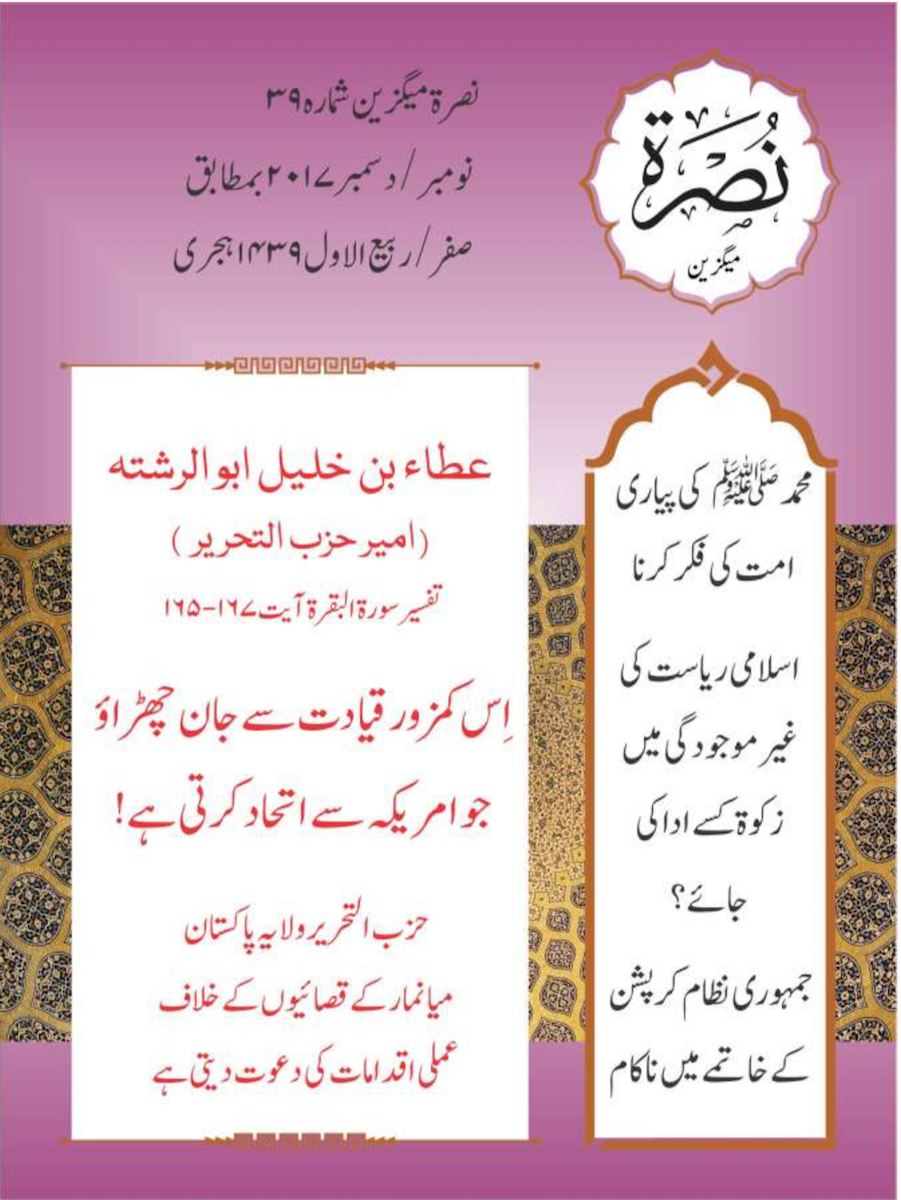 نُصْرَة
میگزین
نصرۃ میگزین شمارہ ۳۹
نومبر / دسمبر ۲۰۱۷ بمطابق
صفر / ربیع الاول ۱۴۳۹ ہجری
محمد ﷺ کی پیاری
امت کی فکر کرنا
اسلامی ریاست کی
غیر موجودگی میں
زکوۃ کسے ادا کی
جائے؟
جمہوری نظام کرپشن
کے خاتمے میں ناکام
عطاء بن خلیل ابو الرشتہ
(امیر حزب التحریر )
تفسیر سورۃ البقرۃ آیت ۱۶۷-۱۶۵
اِس کمزور قیادت سے جان چھڑاؤ
جو امریکہ سے اتحاد کرتی ہے!
حزب التحریر ولایہ پاکستان
میانمار کے قصائیوں کے خلاف
عملی اقدامات کی دعوت دیتی ہے